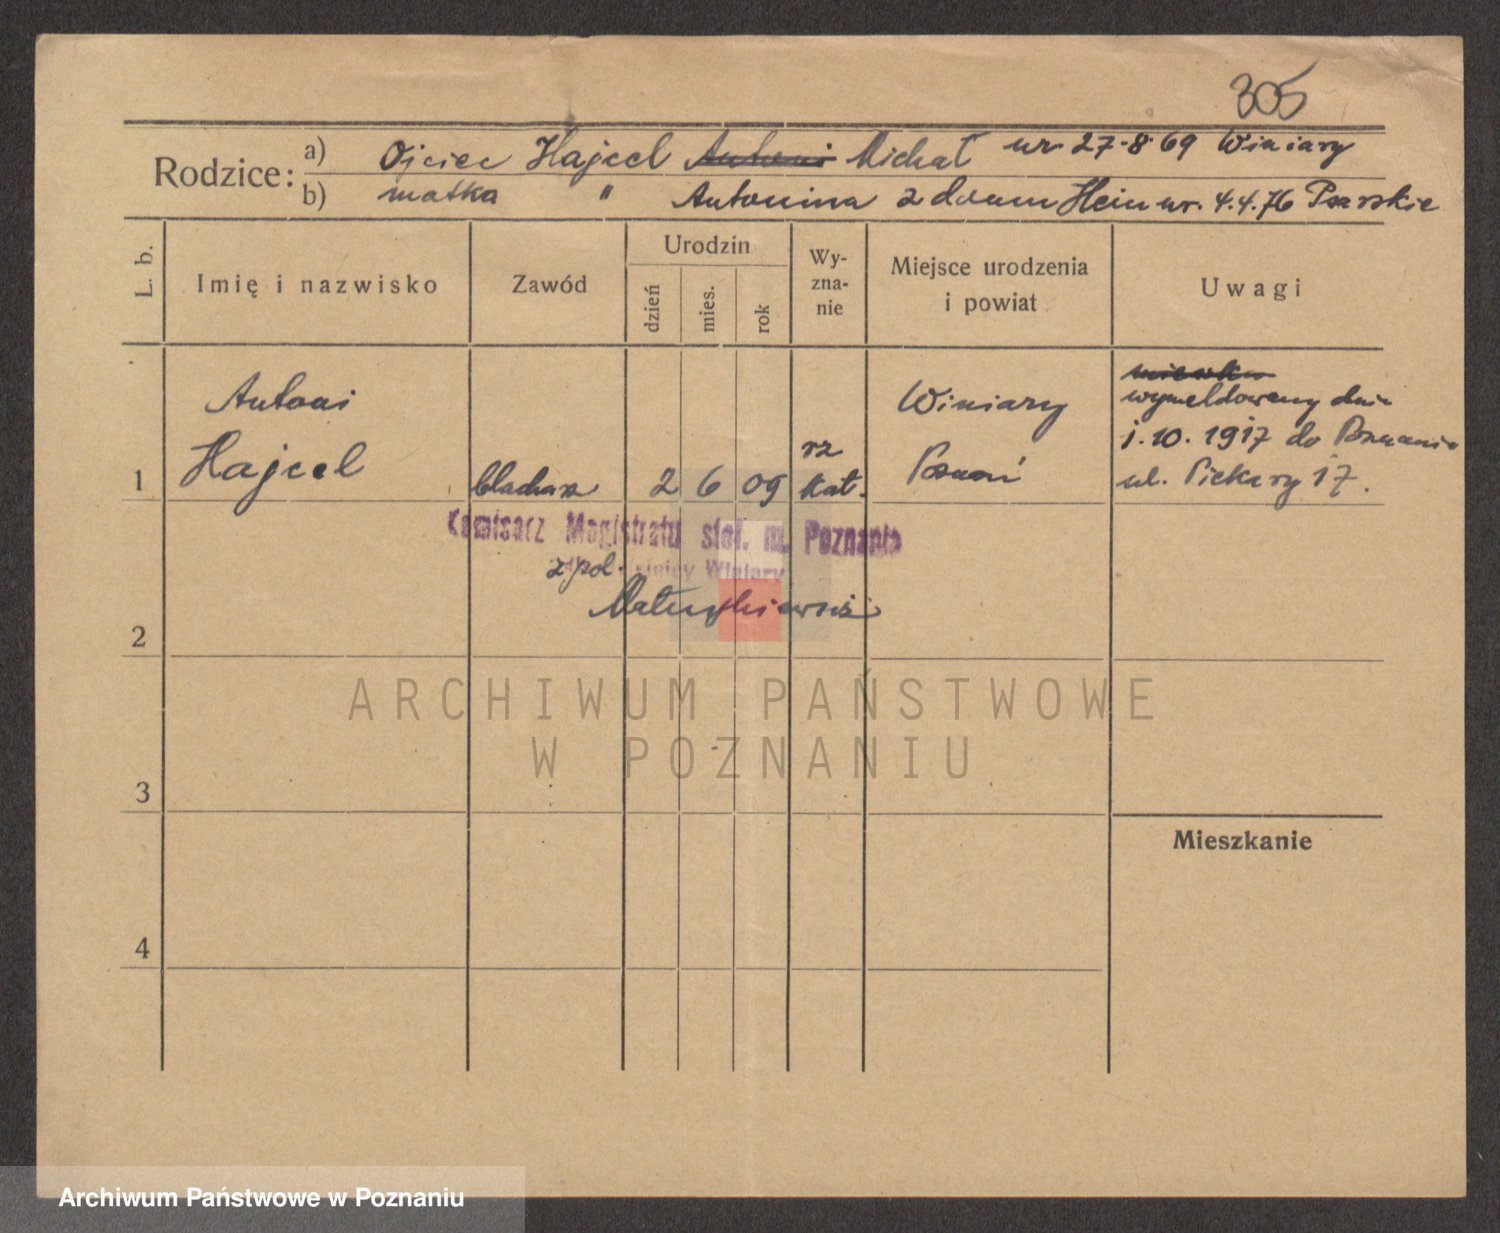 305
Rodzice: a) Ojciec Hajcel Antoni Michał ur 27-8-69 Winiary
b) matka " Antonina z domu Hein ur. 4.4.76 Psarskie
L. b.
Imię i nazwisko
Zawód
Urodzin
dzień
mies.
rok
Wy-
zna-
nie
Miejsce urodzenia
i powiat
Uwagi
1
Antoni
Hajcel
blacharz
2 6 09
rz
kat.
Winiary
Poznań
wymeldowany dnia
1.10.1917 do Poznania
ul. Piekary 17.
Komisarz Magistratu stoł. m. Poznania
Winiary
z pol.
2
3
4
Mieszkanie
ARCHIWUM PAŃSTWOWE
W POZNANIU
Archiwum Państwowe w Poznaniu